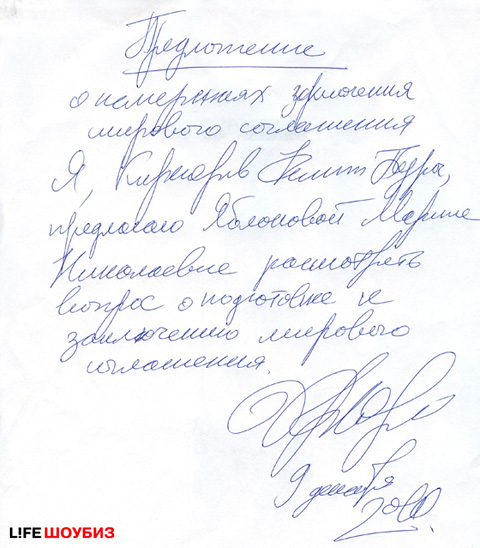 Предложение
о намерениях заключения
мирового соглашения
Я, Киркоров Филипп Бедрос,
предлагаю Яблоковой Марине
Николаевне рассмотреть
вопрос о подготовке к
заключению мирового
соглашения.
9 декабря
2010
L!FE ШОУБИЗ